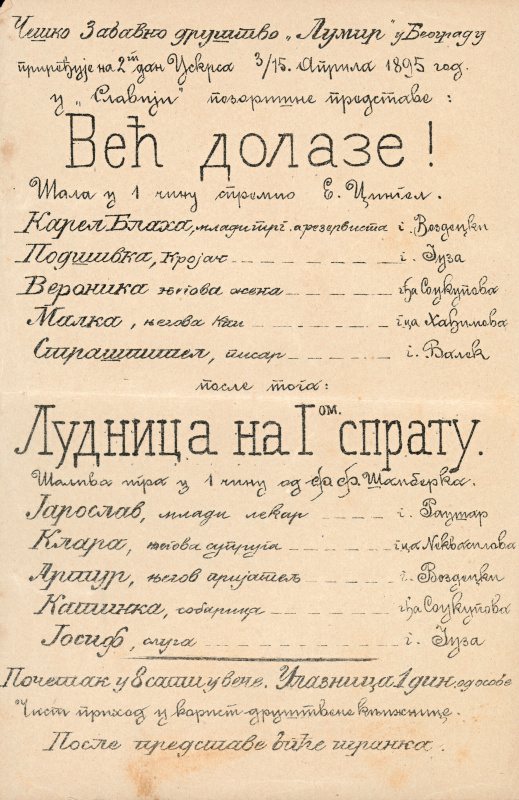 Чешко Забавно друштво „Лумир" у Београду
приређује на 2ги дан Ускрса 3/15. Априла 1895 год.
у „Славији" позоришне представе:
Већ долазе!
Шала у 1 чину спремио Е. Цингел.
Карел Блаха, млади трг. а резервиста --- г. Воздецки
Подшивка, кројач --- г. Јуза
Вероника његова жена --- гђа Соукупова
Малка, његова кћи --- гца Хаћимова
Страшпител, писар --- г. Валек
после тога:
Лудница на I ом. спрату.
Шалива игра у 1 чину од Ф. Ф. Шамберка.
Јарослав, млади лекар --- г. Раушар
Клара, његова супруга --- гца Неквасилова
Артур, његов пријатељ --- г. Воздецки
Катинка, собарица --- гђа Соукупова
Јосиф, слуга --- г. Јуза
Почетак у 8 сати у вече. Улазница 1 дин. од особе
Чист приход у корист друштвене књижнице.
После представе биће игранка.